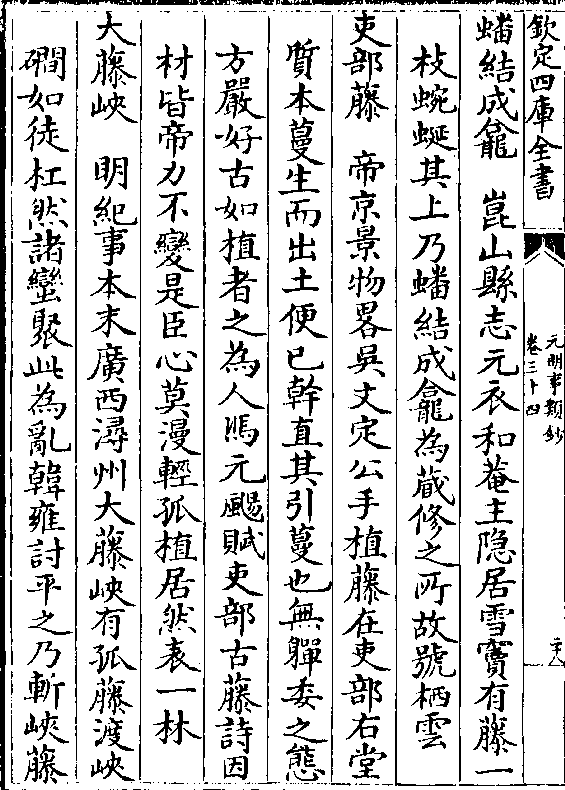 欽定四庫全書
元明事類鈔
卷三十四
蟠結成龕　崑山縣志元衣和菴主隐居雪竇有藤一
枝蜿蜒其上乃蟠結成龕為蔵修之所故號栖雲
吏部藤　帝京景物畧吳文定公手植藤在吏部右堂
質本蔓生而出土便已幹直其引蔓也無軃委之態
方嚴好古如植者之為人馮元颺賦吏部古藤詩因
材皆帝力不變是臣心莫漫輕孤植居然表一林
大藤峽　明紀事本末廣西潯州大藤峽有孤藤渡峽
磵如徒杠然諸蠻聚此為亂韓雍討平之乃斬峽藤